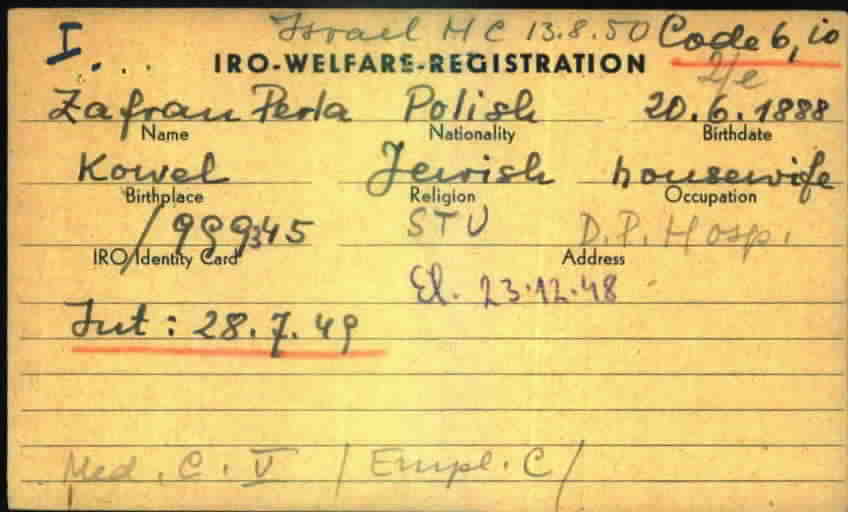 Israel HC 13.8.50 Code 6, io
I...
IRO-WELFARE-REGISTRATION
2/e
Zafran Perla Polish 20.6.1888
Name Nationality Birthdate
Kowel Jewish housewife
Birthplace Religion Occupation
STU D.P. Hosp.
IRO Identity Card Address
El. 23.12.48
Int: 28.7.49
Med. C. V / Empl. C/